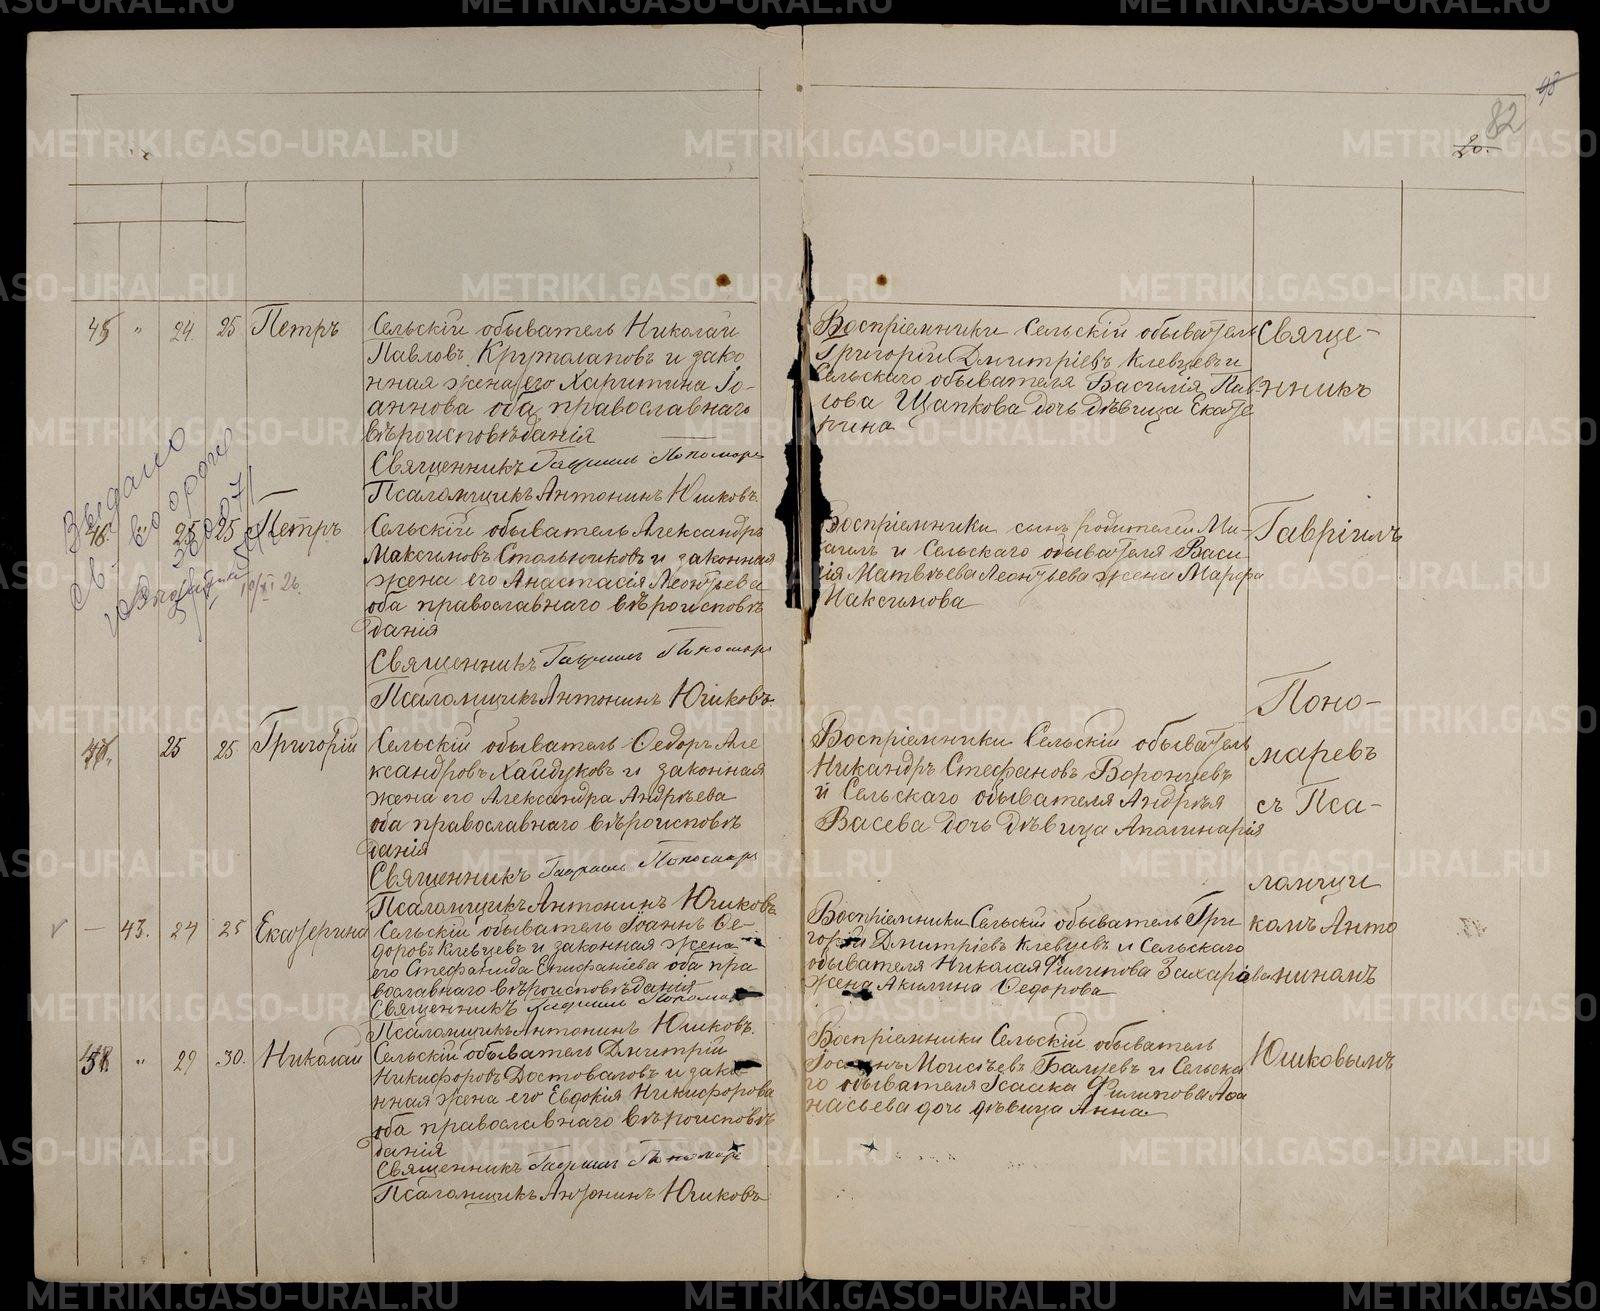 98
82
20.
45 " 24. 25 Петръ
Сельскій обыватель Николай
Павловъ Крутолаповъ и зако
нная жена его Харитина Іо-
аннова оба православнаго
вѣроисповѣданія
Священникъ Гавріилъ Пономаре
Псаломщикъ Антонинъ Юшковъ.
Воспріемники Сельскій обыватель
Григорій Дмитріевъ Клевцевъ и
Сельскаго обывателя Василія Пав
лова Щапкова дочь дѣвица Екате
рина
Выдано
46. " 25 25 Петръ
Сельскій обыватель Александръ
Максимовъ Стольниковъ и законная
жена его Анастасія Леонтьева
оба православнаго вѣроисповѣ
данія
Священникъ Гавріилъ Пономаре
Псаломщикъ Антонинъ Юшковъ.
Воспріемники сынъ родителей Ми-
хаилъ и Сельскаго обывателя Васи
лія Матвѣева Леонтьева жена Марфа
Максимова
25 25 Григорій
Сельскій обыватель Ѳедоръ Але
ксандровъ Хайдуковъ и законная
жена его Александра Андрѣева
оба православнаго вѣроисповѣ
данія
Священникъ Гавріилъ Пономаре
Псаломщикъ Антонинъ Юшковъ
Воспріемники Сельскій обыватель
Никандръ Стефановъ Воронцевъ
и Сельскаго обывателя Андрѣя
Васева дочь дѣвица Аполинарія
— 43. 24 25 Екатерина
Сельскій обыватель Іоаннъ Ѳе-
доровъ Клевцевъ и законная жена
его Стефанида Епифаніева оба пра
вославнаго вѣроисповѣданія
Священникъ Гавріилъ Пономаре
Псаломщикъ Антонинъ Юшковъ.
Воспріемники Сельскій обыватель Гри
горій Дмитріевъ Клевцевъ и Сельскаго
обывателя Николая Филипова Захарова
жена Акилина Ѳедорова
" 29 30. Николай
Сельскій обыватель Дмитрій
Никифоровъ Достоваловъ и зако
нная жена его Евдокія Никифорова
оба православнаго вѣроисповѣ
данія
Священникъ Гавріилъ Пономаре
Псаломщикъ Антонинъ Юшковъ
Воспріемники Сельскій обыватель
Моисѣевъ Балуевъ и Сельска
го обывателя Исаака Филипова Афа
насьева дочь дѣвица Анна
Свяще-
нникъ
Гавріилъ
Поно-
маревъ
съ Пса-
ломщи
комъ Анто
ниномъ
Юшковымъ
METRIKI.GASO-URAL.RU